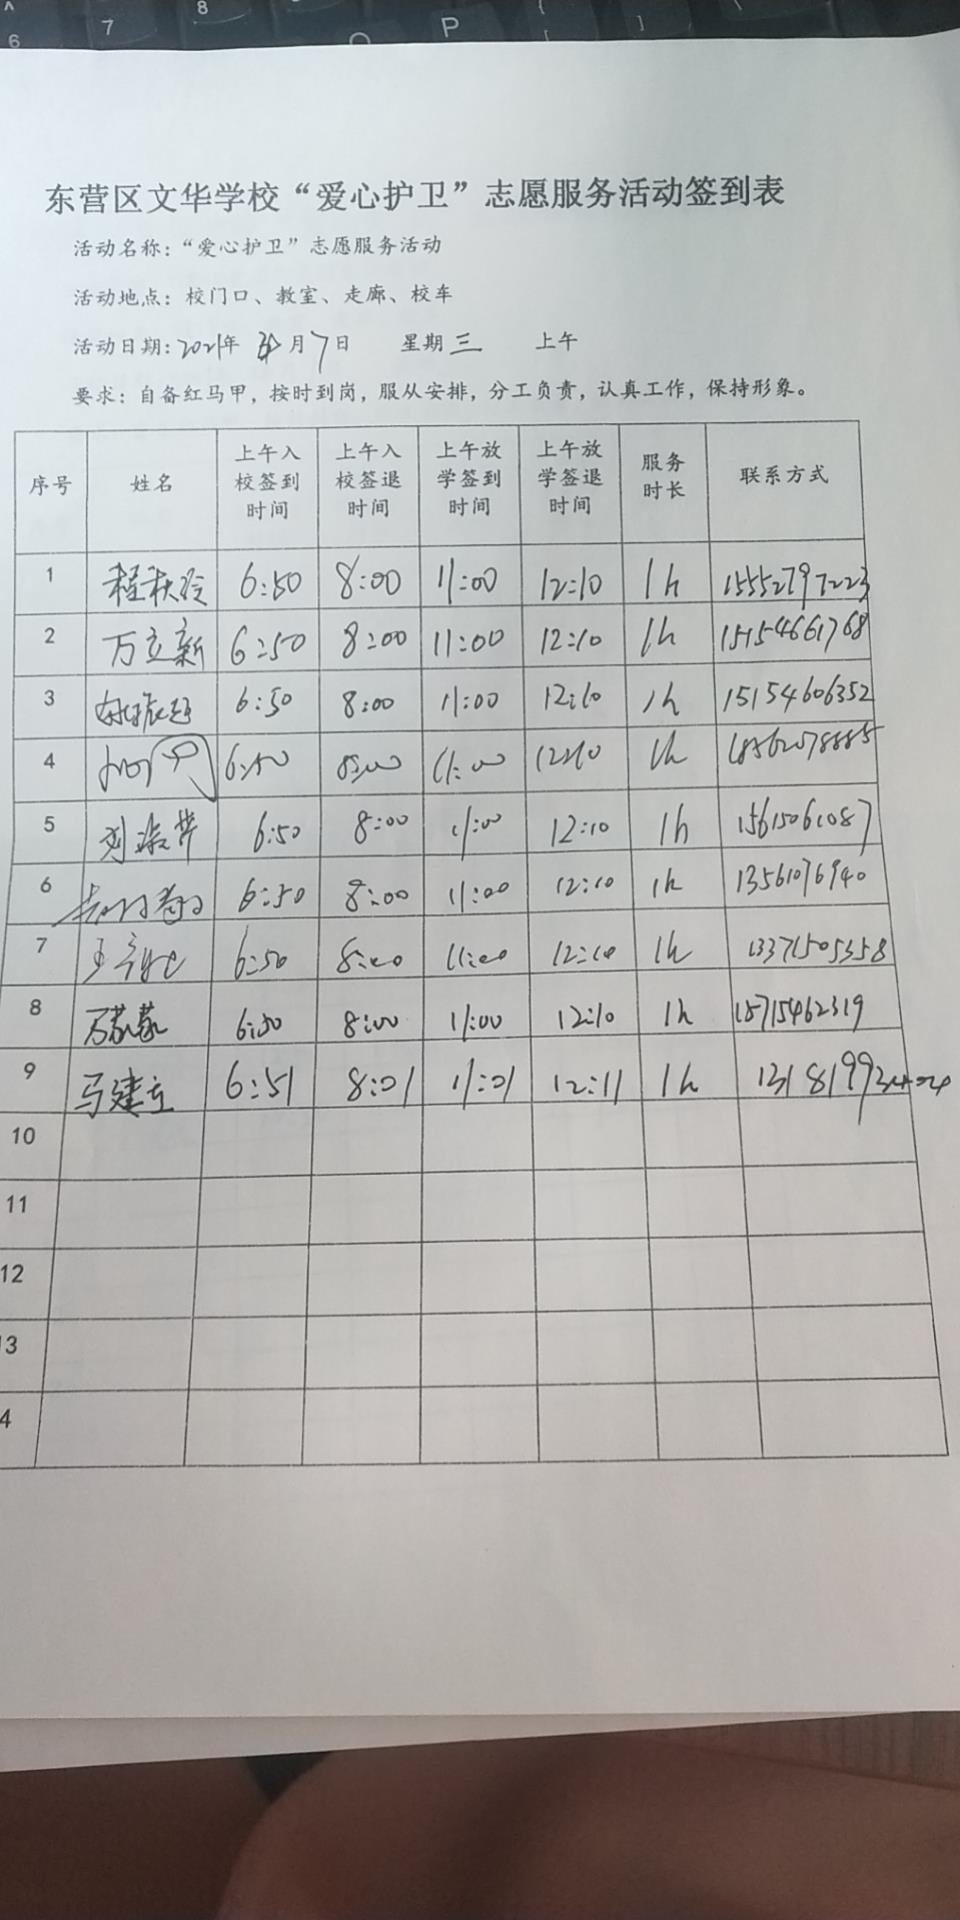 东营区文华学校“爱心护卫”志愿服务活动签到表
活动名称：“爱心护卫”志愿服务活动
活动地点：校门口、教室、走廊、校车
活动日期：2021年 月7日 星期三 上午
要求：自备红马甲，按时到岗，服从安排，分工负责，认真工作，保持形象。
序号 姓名 上午入校签到时间 上午入校签退时间 上午放学签到时间 上午放学签退时间 服务时长 联系方式
1 程秋玲 6:50 8:00 11:00 12:10 1h 15552797223
2 万立新 6:50 8:00 11:00 12:10 1h 15154661768
3 6:50 8:00 11:00 12:10 1h 15154606352
4 6:50 8:00 11:00 12:10 1h
5 6:50 8:00 11:00 12:10 1h 15615061087
6 6:50 8:00 11:00 12:10 1h 13561076940
7 6:50 8:00 11:00 12:10 1h 13371505358
8 万蒙蒙 6:50 8:00 11:00 12:10 1h 18715462319
9 马建立 6:51 8:01 11:01 12:11 1h
10
11
12
13
4